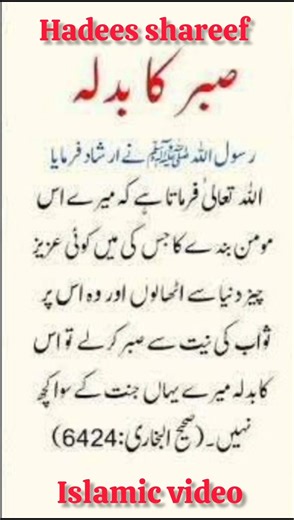 Hadees shareef
صبر کا بدلہ
رسول اللہ ﷺ نے ارشاد فرمایا
اللہ تعالیٰ فرماتا ہے کہ میرے اس
مومن بندے کا جس کی میں کوئی عزیز
چیز دنیا سے اٹھالوں اور وہ اس پر
ثواب کی نیت سے صبر کرلے تو اس
کا بدلہ میرے یہاں جنت کے سوا کچھ
نہیں۔ (صحیح البخاری:6424)
Islamic video